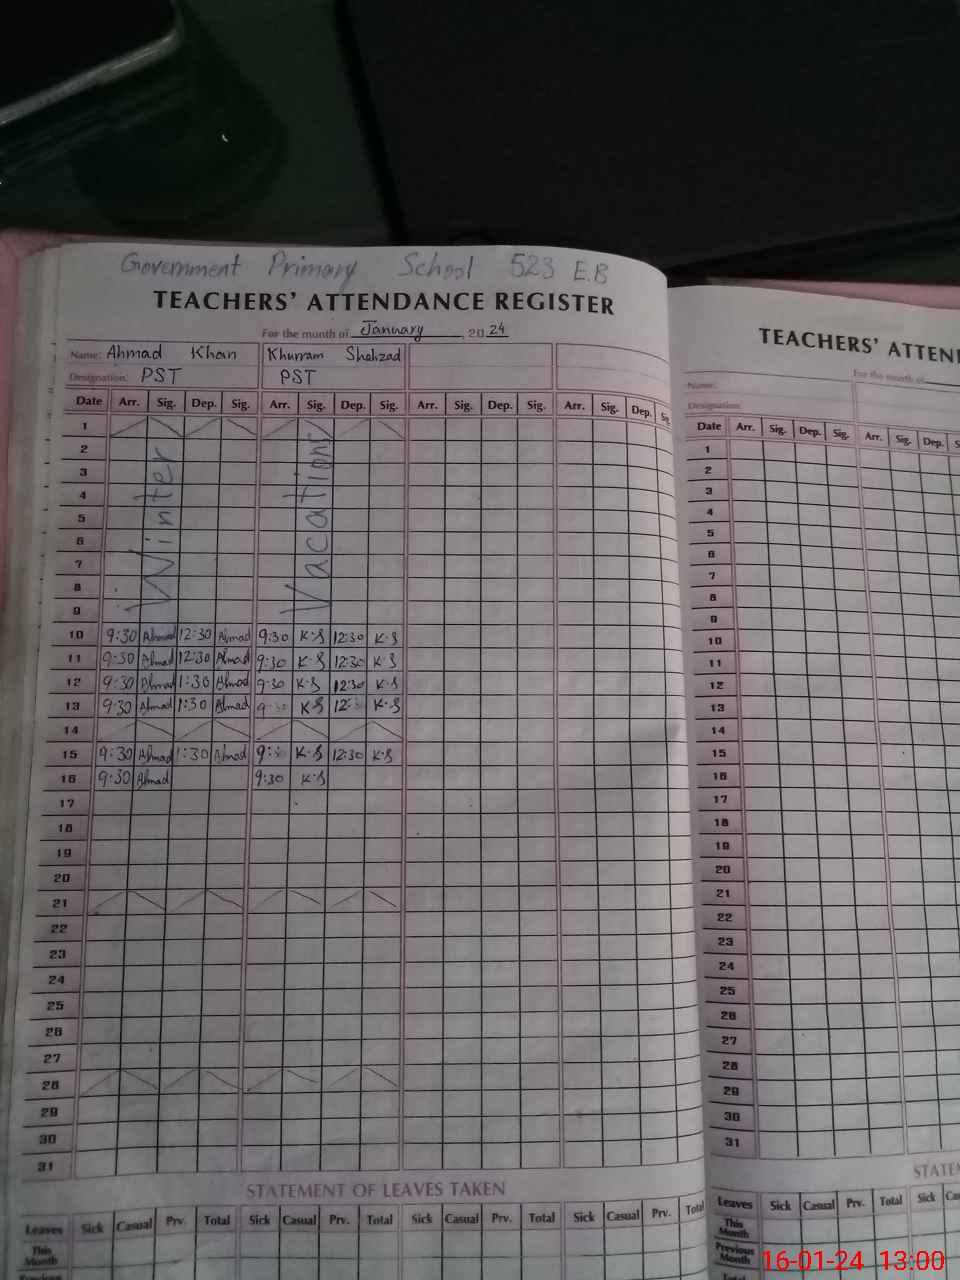 Government Primary School 523 E.B
TEACHERS' ATTENDANCE REGISTER
For the month of January, 2024
Name: Ahmad Khan Khurram Shahzad
Designation: PST PST
Date Arr. Sig. Dep. Sig. Arr. Sig. Dep. Sig. Arr. Sig. Dep. Sig. Arr. Sig. Dep. Sig.
1
2
3
4
5
6
7
8
9
Winter Vacations
10 9:30 Ahmad 12:30 Ahmad 9:30 K.S 12:30 K.S
11 9:30 Ahmad 12:30 Ahmad 9:30 K.S 12:30 K.S
12 9:30 Ahmad 1:30 Ahmad 9:30 K.S 12:30 K.S
13 9:30 Ahmad 1:30 Ahmad 9:30 K.S 12: K.S
14
15 9:30 Ahmad 1:30 Ahmad 9:30 K.S 12:30 K.S
16 9:30 Ahmad 9:30 K.S
17
18
19
20
21
22
23
24
25
26
27
28
29
30
31
STATEMENT OF LEAVES TAKEN
Leaves Sick Casual Prv. Total Sick Casual Prv. Total Sick Casual Prv. Total Sick Casual Prv. Total
This Month
Previous
TEACHERS' ATTEN
For the month of
Name:
Designation:
Date Arr. Sig. Dep. Sig. Arr. Sig. Dep. S
1
2
3
4
5
6
7
8
9
10
11
12
13
14
15
16
17
18
19
20
21
22
23
24
25
26
27
28
29
30
31
STATEM
Leaves Sick Casual Prv. Total Sick Ca
This Month
Previous Month
16-01-24 13:00